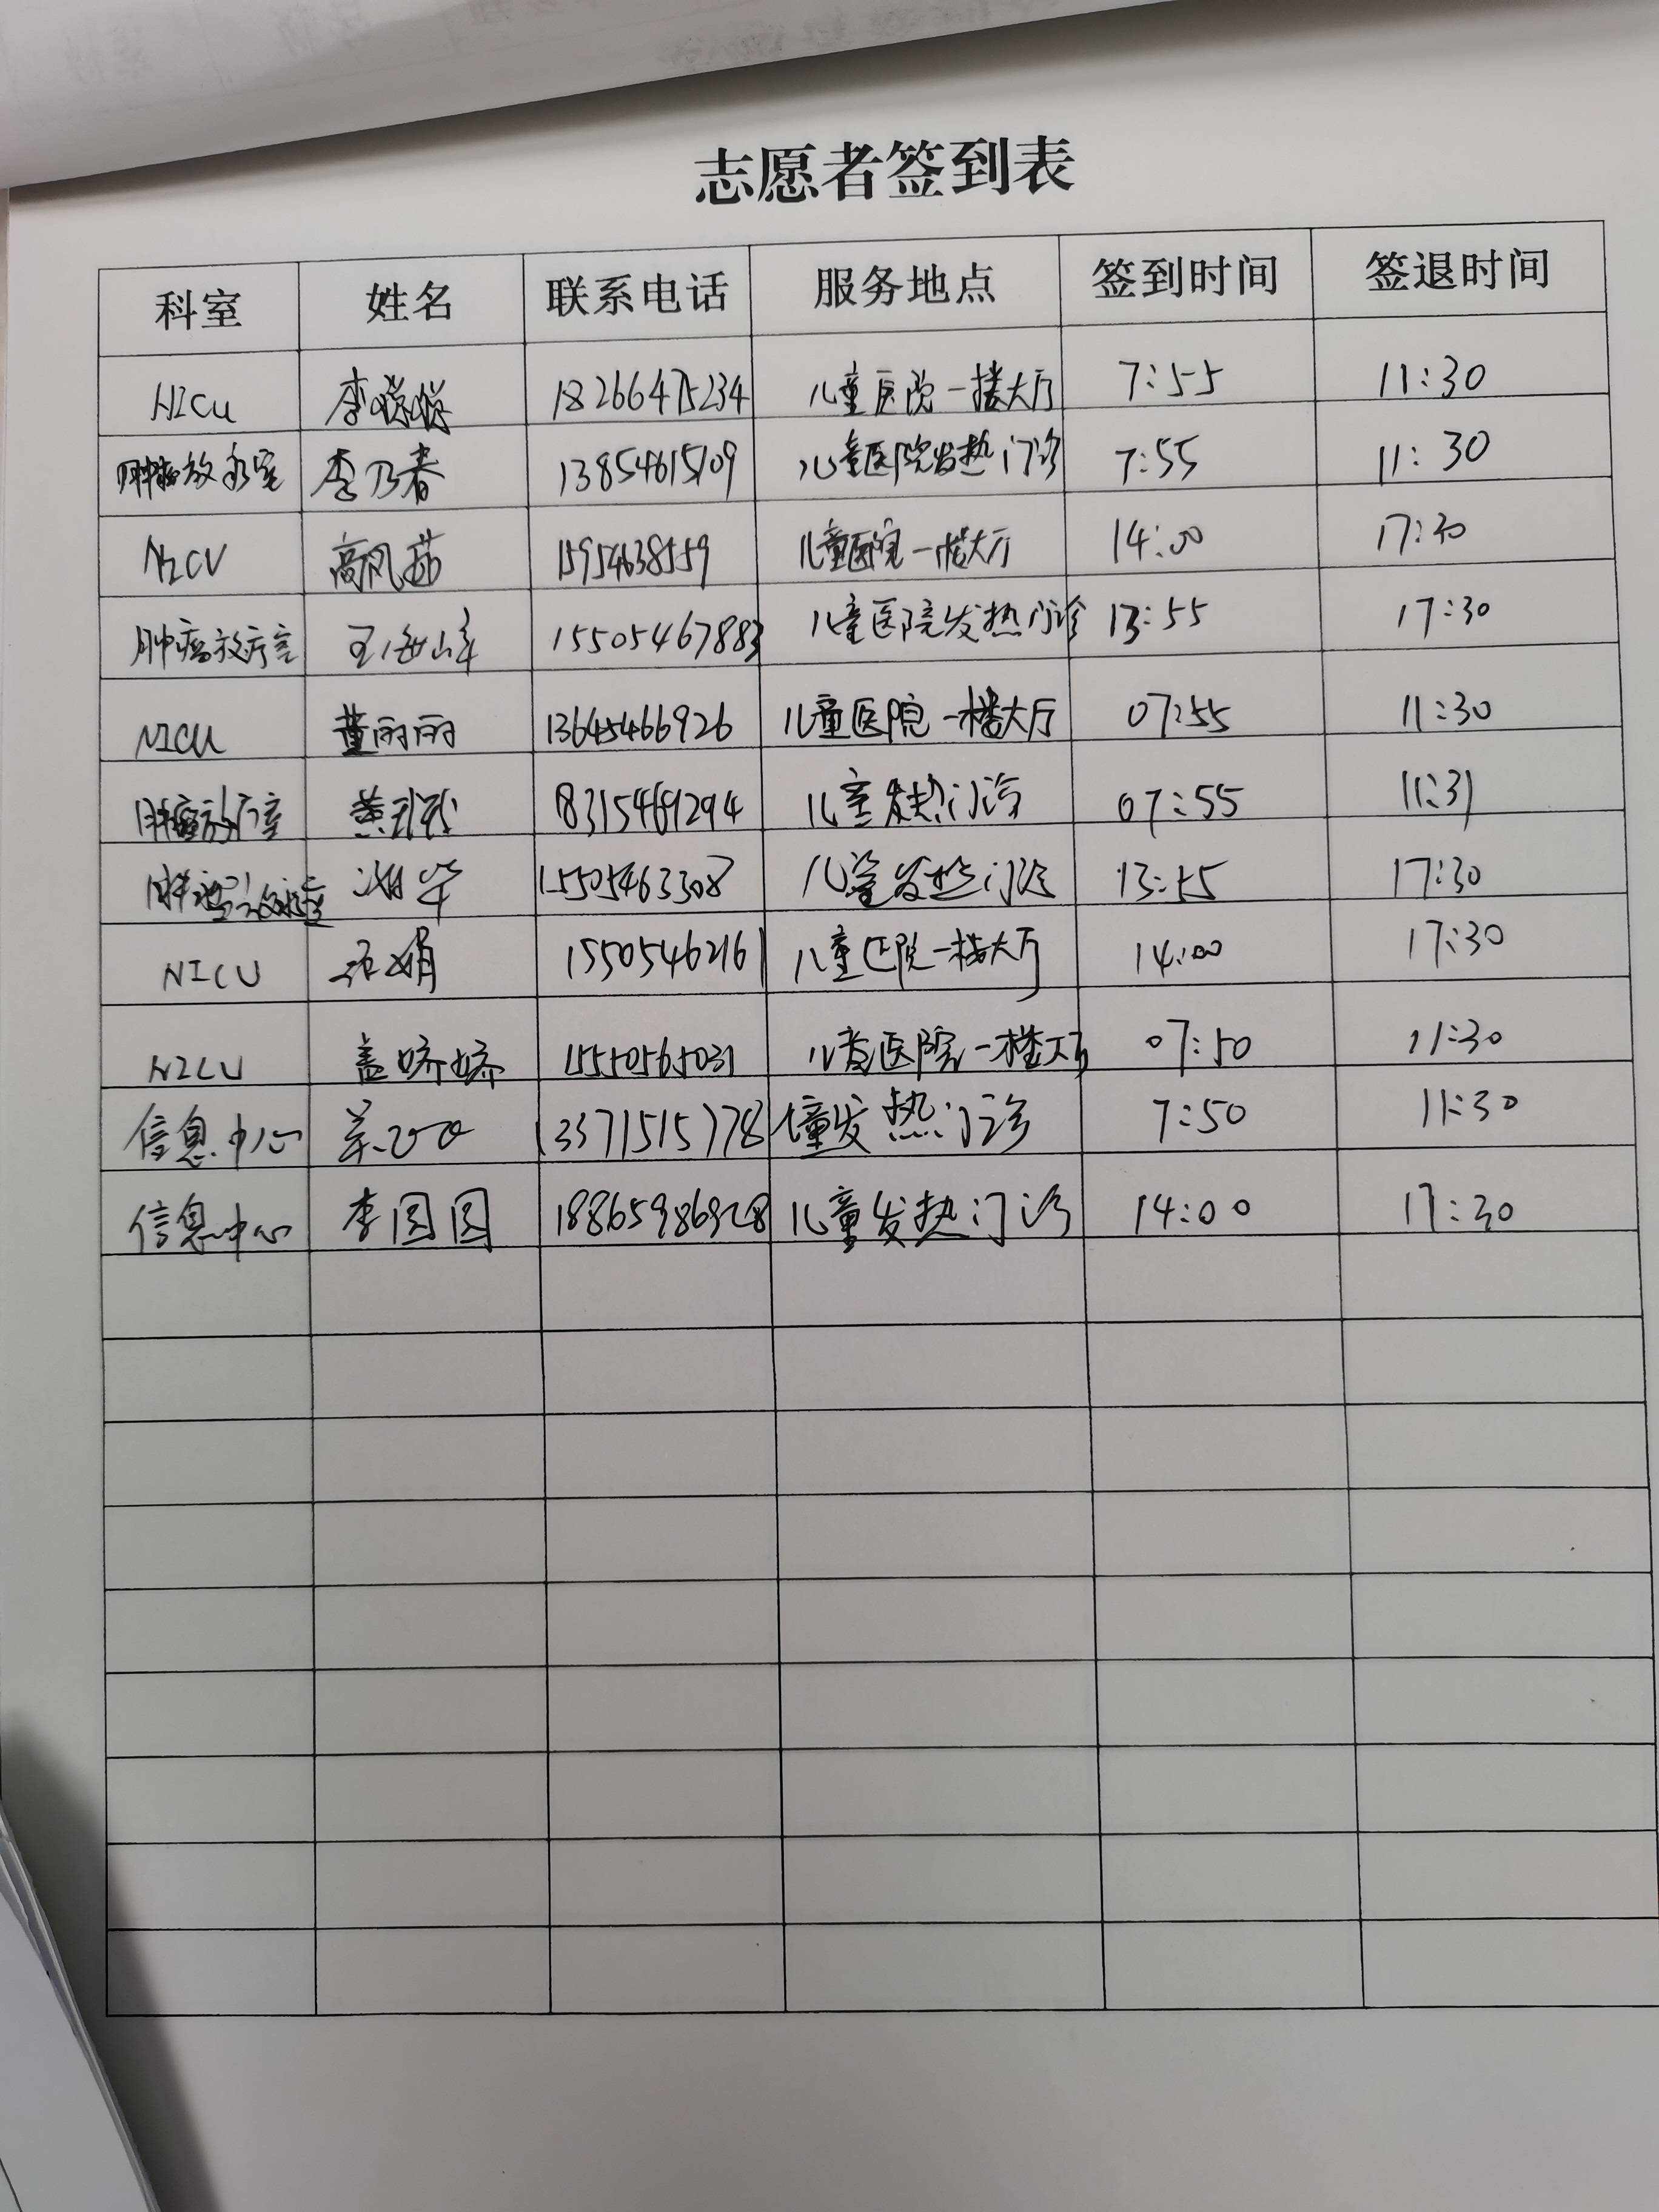 志愿者签到表
科室 姓名 联系电话 服务地点 签到时间 签退时间
NICU 李 18266475234 儿童医院一楼大厅 7:55 11:30
肿瘤放疗室 李乃春 13854615109 儿童医院发热门诊 7:55 11:30
NICU 高凤茹 15954638559 儿童医院一楼大厅 14:00 17:30
肿瘤放疗室 王海峰 15505467883 儿童医院发热门诊 13:55 17:30
NICU 董丽丽 13645466926 儿童医院一楼大厅 07:55 11:30
肿瘤放疗室 黄 儿童发热门诊 07:55 11:31
肿瘤放疗室 15505463308 儿童发热门诊 13:55 17:30
NICU 张娟 15505462161 儿童医院一楼大厅 14:00 17:30
NICU 盖娇娇 15550565031 儿童医院一楼大厅 07:50 11:30
信息中心 13371515778 儿童发热门诊 7:50 11:30
信息中心 李圆圆 18865986928 儿童发热门诊 14:00 17:30